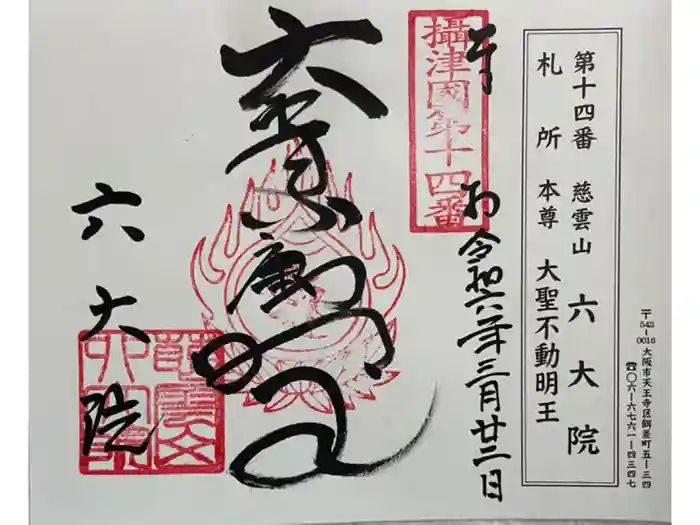 〒543-0016 大阪市天王寺区餌差町五ー三四
☎〇六ー六七六一ー四三四七
第十四番 慈雲山 六大院
札所 本尊 大聖不動明王
攝津國第十四番
令和六年三月廿二日
六大院